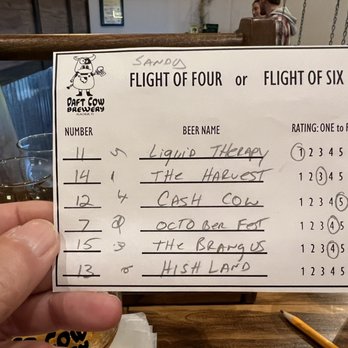 SANDY
FLIGHT OF FOUR or FLIGHT OF SIX
DAFT COW
BREWERY
NUMBER BEER NAME RATING: ONE to F
11 5 LIQUID THERAPY 1 2 3 4 5
14 1 THE HARVEST 1 2 3 4 5
12 4 CASH COW 1 2 3 4 5
7 2 OCTOBER FEST 1 2 3 4 5
15 3 THE BRANGUS 1 2 3 4 5
13 6 HISHLAND 1 2 3 4 5
FT COW